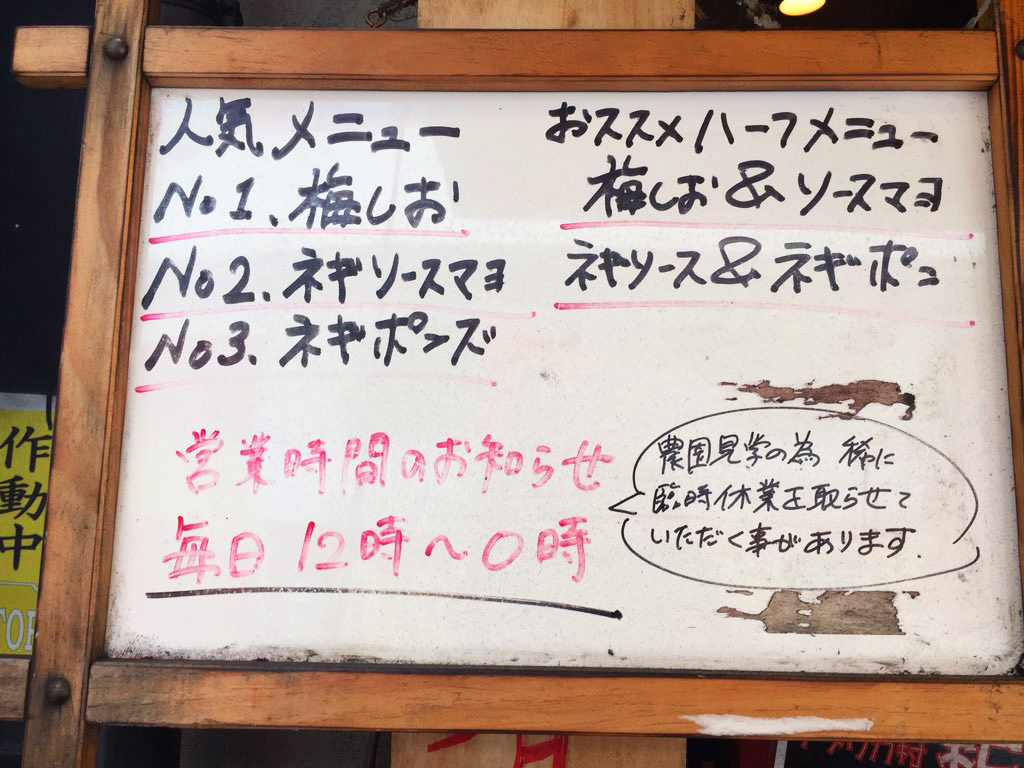 人気メニュー
No1.梅しお
No2.ネギソースマヨ
No3.ネギポンズ
おススメハーフメニュー
梅しお&ソースマヨ
ネギソース&ネギポン
営業時間のお知らせ
毎日12時〜0時
農園見学の為 稀に
臨時休業を取らせて
いただく事があります.
作動中